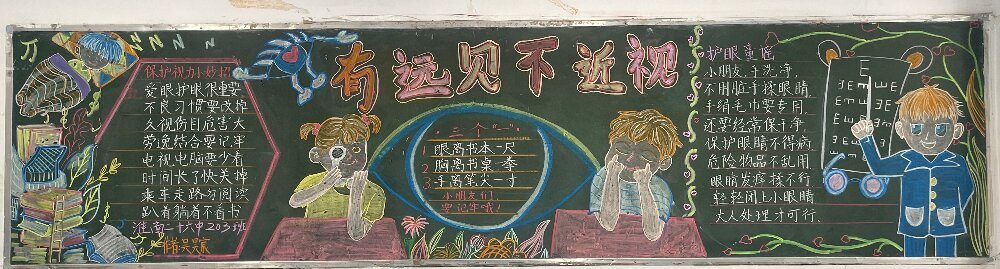 有远见不近视
保护视力小妙招
爱眼护眼很重要
不良习惯要改掉
久视伤目危害大
劳逸结合要记牢
电视电脑要少看
时间长了快关掉
乘车走路勿阅读
趴着躺着不看书
淮南二十六中203班
三个“一”
1 眼离书本一尺
2 胸离书桌一拳
3 手离笔尖一寸
小朋友们
要记牢哦!
护眼童谣
小朋友,手洗净,
不用脏手揉眼睛,
手绢毛巾要专用,
还要经常保干净,
保护眼睛不得病,
危险物品不乱用,
眼睛发痒揉不行,
轻轻闭上小眼睛
大人处理才可行.